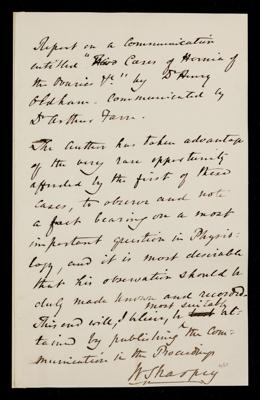 Report on a communication
entitled "Two Cases of Hernia of
the Ovaries &c." by Dr Henry
Oldham. Communicated by
Dr Arthur Farre.
The author has taken advantage
of the very rare opportunity
afforded by the first of these
cases, to observe and note
a fact bearing on a most
important question in Physio-
logy, and it is most desirable
that his observation should be
duly made known and recorded.
most suitably
This end will, I believe, be at-
tained by publishing the Com-
munication in the Proceedings
W Sharpey